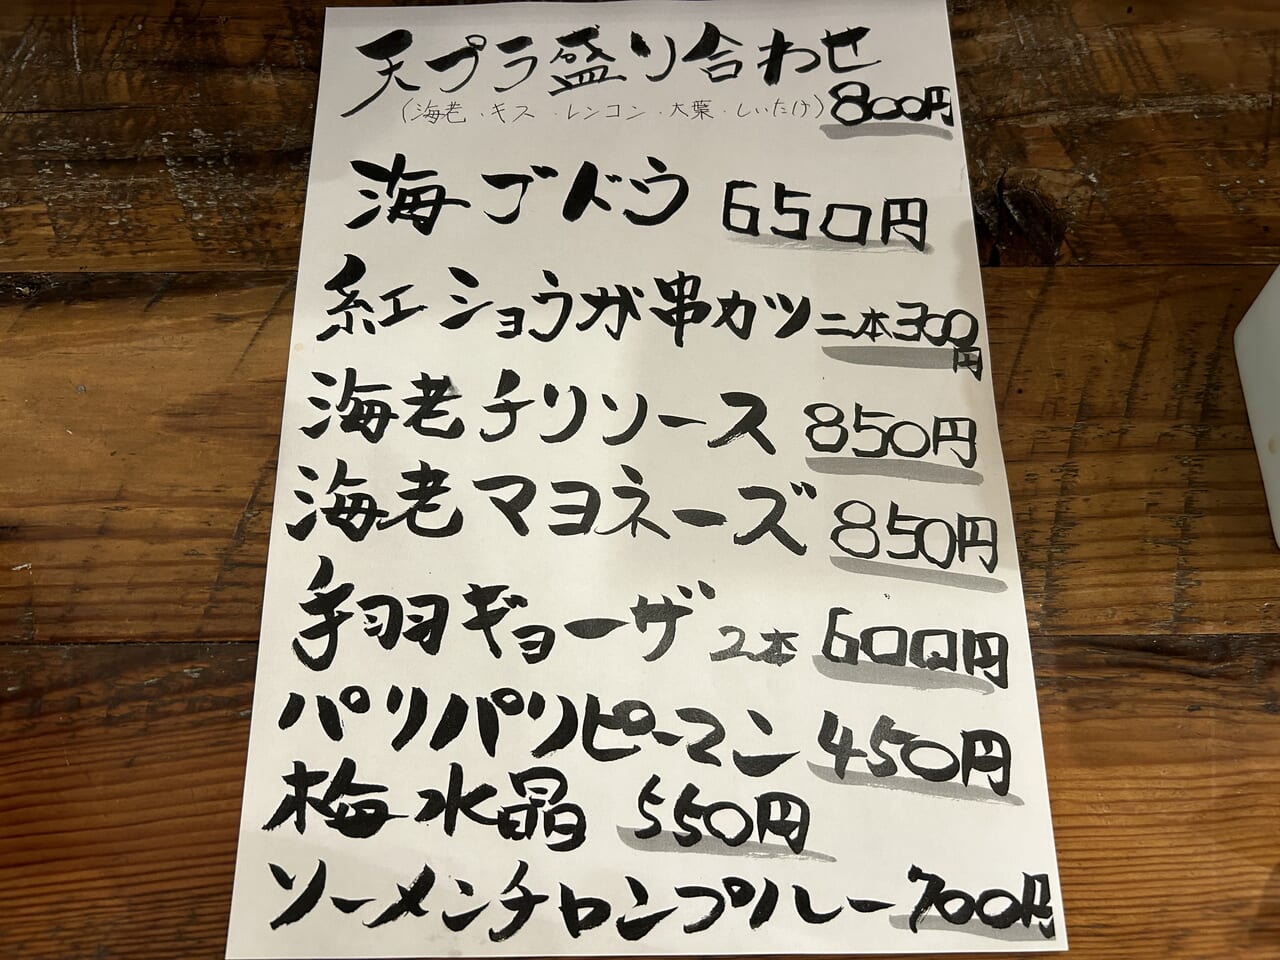 天プラ盛り合わせ
(海老・キス・レンコン・大葉・しいたけ) 800円
海ブドウ 650円
紅ショウガ串カツ二本300円
海老チリソース 850円
海老マヨネーズ 850円
手羽ギョーザ 2本 600円
パリパリピーマン 450円
梅水晶 550円
ソーメンチャンプルー700円